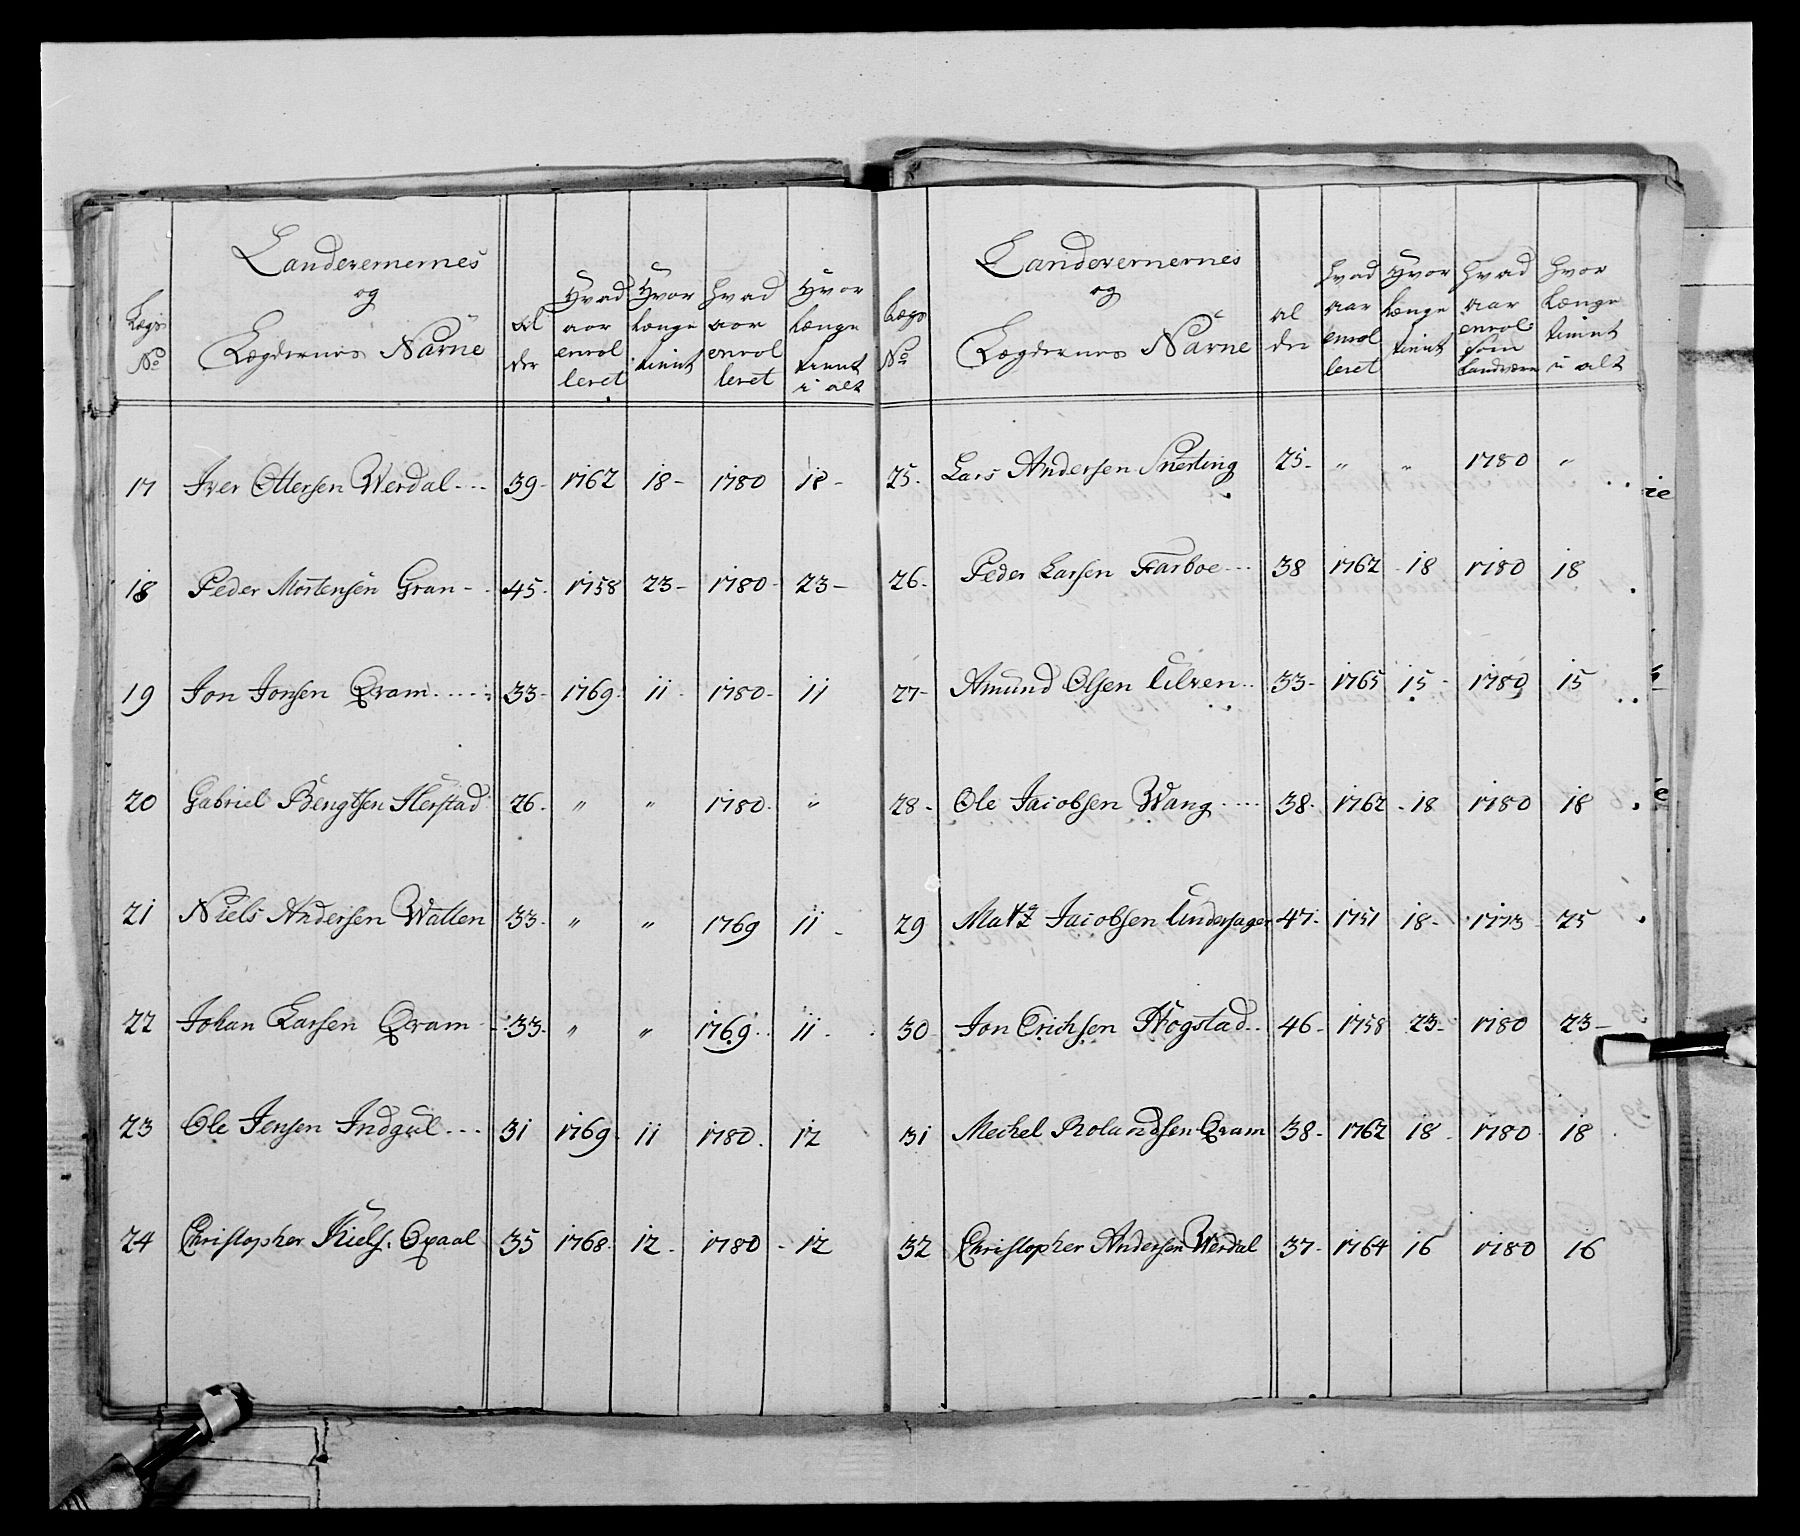 Lægs No | Landevernernes og Lægdernes Navne | al der | Hvad aar enrol leret | Hvor længe tient | hvad aar enrol leret | Hvor længe tient i alt
17 Iver Ottersen Werdal 39 1762 18 1780 18
18 Peder Mortensen Gran 45 1758 23 1780 23
19 Jon Jonsen Qvam 33 1769 11 1780 11
20 Gabriel Bengtsen 26 " " 1780 "
21 Niels Andersen Watten 33 " " 1769 11
22 Johan Larsen Qvam 33 " " 1769 11
23 Ole Jensen Indgul 31 1769 11 1780 12
24 Christopher Niels. Opaal 35 1768 12 1780 12
Lægs No | Landevernernes og Lægdernes Navne | al der | hvad aar enrol leret | Hvor længe tient | hvad aar enrol som Landværn | hvor længe tient i alt
25 Lars Andersen Snerting 25 " " 1780 "
26 Peder Larsen Farboe 38 1762 18 1780 18
27 Amund Olsen Ulven 33 1765 15 1780 15
28 Ole Jacobsen Wang 38 1762 18 1780 18
29 Matz Jacobsen Undersager 47 1751 18 1773 25
30 Jon Erichsen Hogstad 46 1758 23 1780 23
31 Mechel Rolandsen Qvam 38 1762 18 1780 18
32 Christopher Andersen Werdal 37 1764 16 1780 16